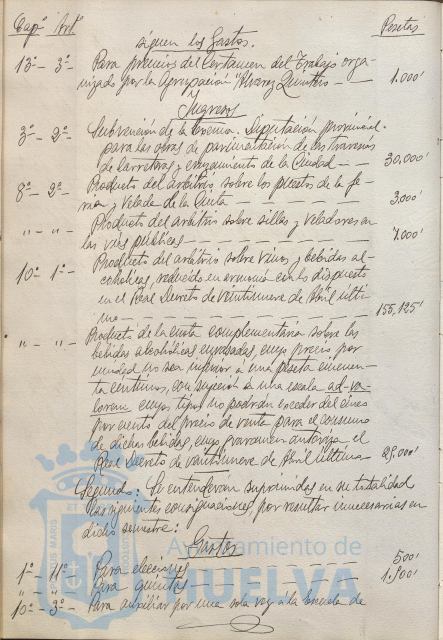 Capº Artº Pesetas
siguen los Gastos.
13º - 3º - Para premios del Certamen del Trabajo orga-
nizado por la Agrupación "Alvarez Quintero - 1.000'
Ingresos
3º - 2º - Subvención de la Excma. Diputación provincial
para las obras de pavimentación de las travesías
de Carreteras y ensanchamiento de la Ciudad - 30,000'
8º - 2º - Producto del arbitrio sobre los puestos de la fe-
ria y Velada de la Cinta - 3.000'
" - " - Producto del arbitrio sobre sillas y veladores en
las vías públicas - 7.000'
10º - 1º - Producto del arbitrio sobre vinos y bebidas al-
cohólicas, reducido en armonía con lo dispuesto
en el Real Decreto de veintinueve de Abril últi-
mo - 155,125'
" - " - Producto de la cuota complementaria sobre las
bebidas alcohólicas envasadas, cuyo precio por
unidad no sea inferior a una peseta cincuen-
ta céntimos, con sujeción a una escala ad-va-
lorem cuyos tipos no podrán exceder del cinco
por ciento del precio de venta para el consumo
de dichas bebidas, cuyo gravamen autoriza el
Real Decreto de veintinueve de Abril último - 25,000'
Segundo: Se entenderan suprimidas en su totalidad
las siguientes consignaciones, por resultar innecesarias en
dicho semestre:
Gastos
1º - 11º - Para elecciones - 500'
" - " - Para quintas - 1.500'
10º - 3º - Para auxiliar por una sola vez á la Escuela de
Ayuntamiento de
HUELVA